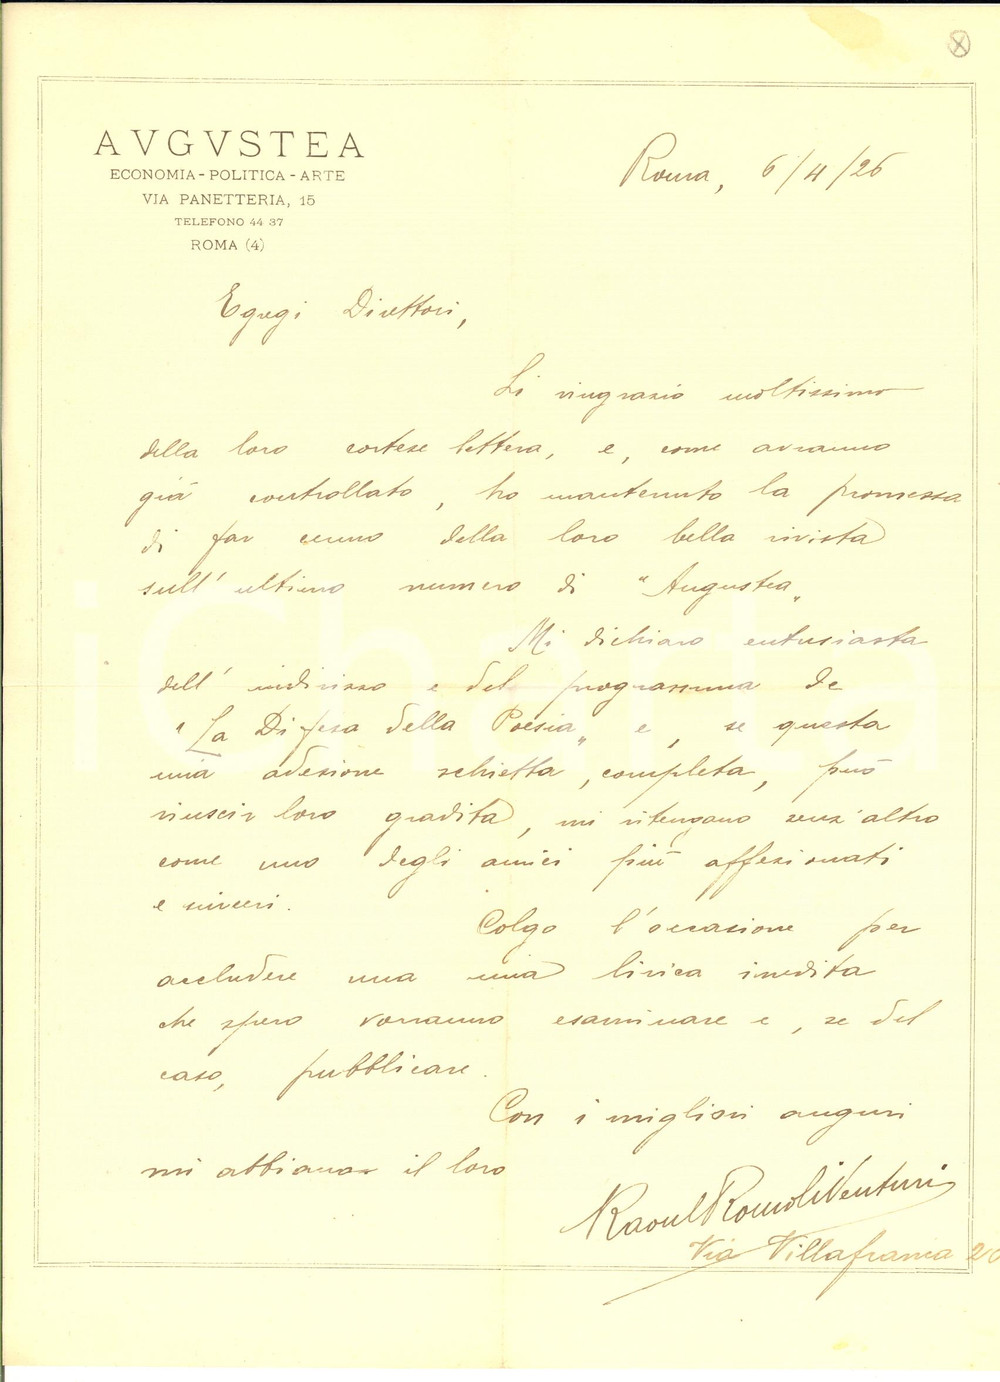 AVGVSTEA
ECONOMIA - POLITICA - ARTE
VIA PANETTERIA, 15
TELEFONO 44 37
ROMA (4)
Roma, 6/4/26
Egregi Direttori,
Li ringrazio moltissimo
della loro cortese lettera, e, come avranno
già controllato, ho mantenuto la promessa
di far cenno della loro bella rivista
sull'ultimo numero di "Augustea„
Mi dichiaro entusiasta
dell'indirizzo e del programma de
"La Difesa della Poesia„ e, se questa
mia adesione schietta, completa, può
riuscir loro gradita, mi ritengano senz'altro
come uno degli amici più affezionati
e sinceri.
Colgo l'occasione per
accludere una mia lirica inedita
che spero vorranno esaminare e, se del
caso, pubblicare.
Con i migliori auguri
mi abbiano il loro
Raoul Romoli Venturi
Via Villafranca 20